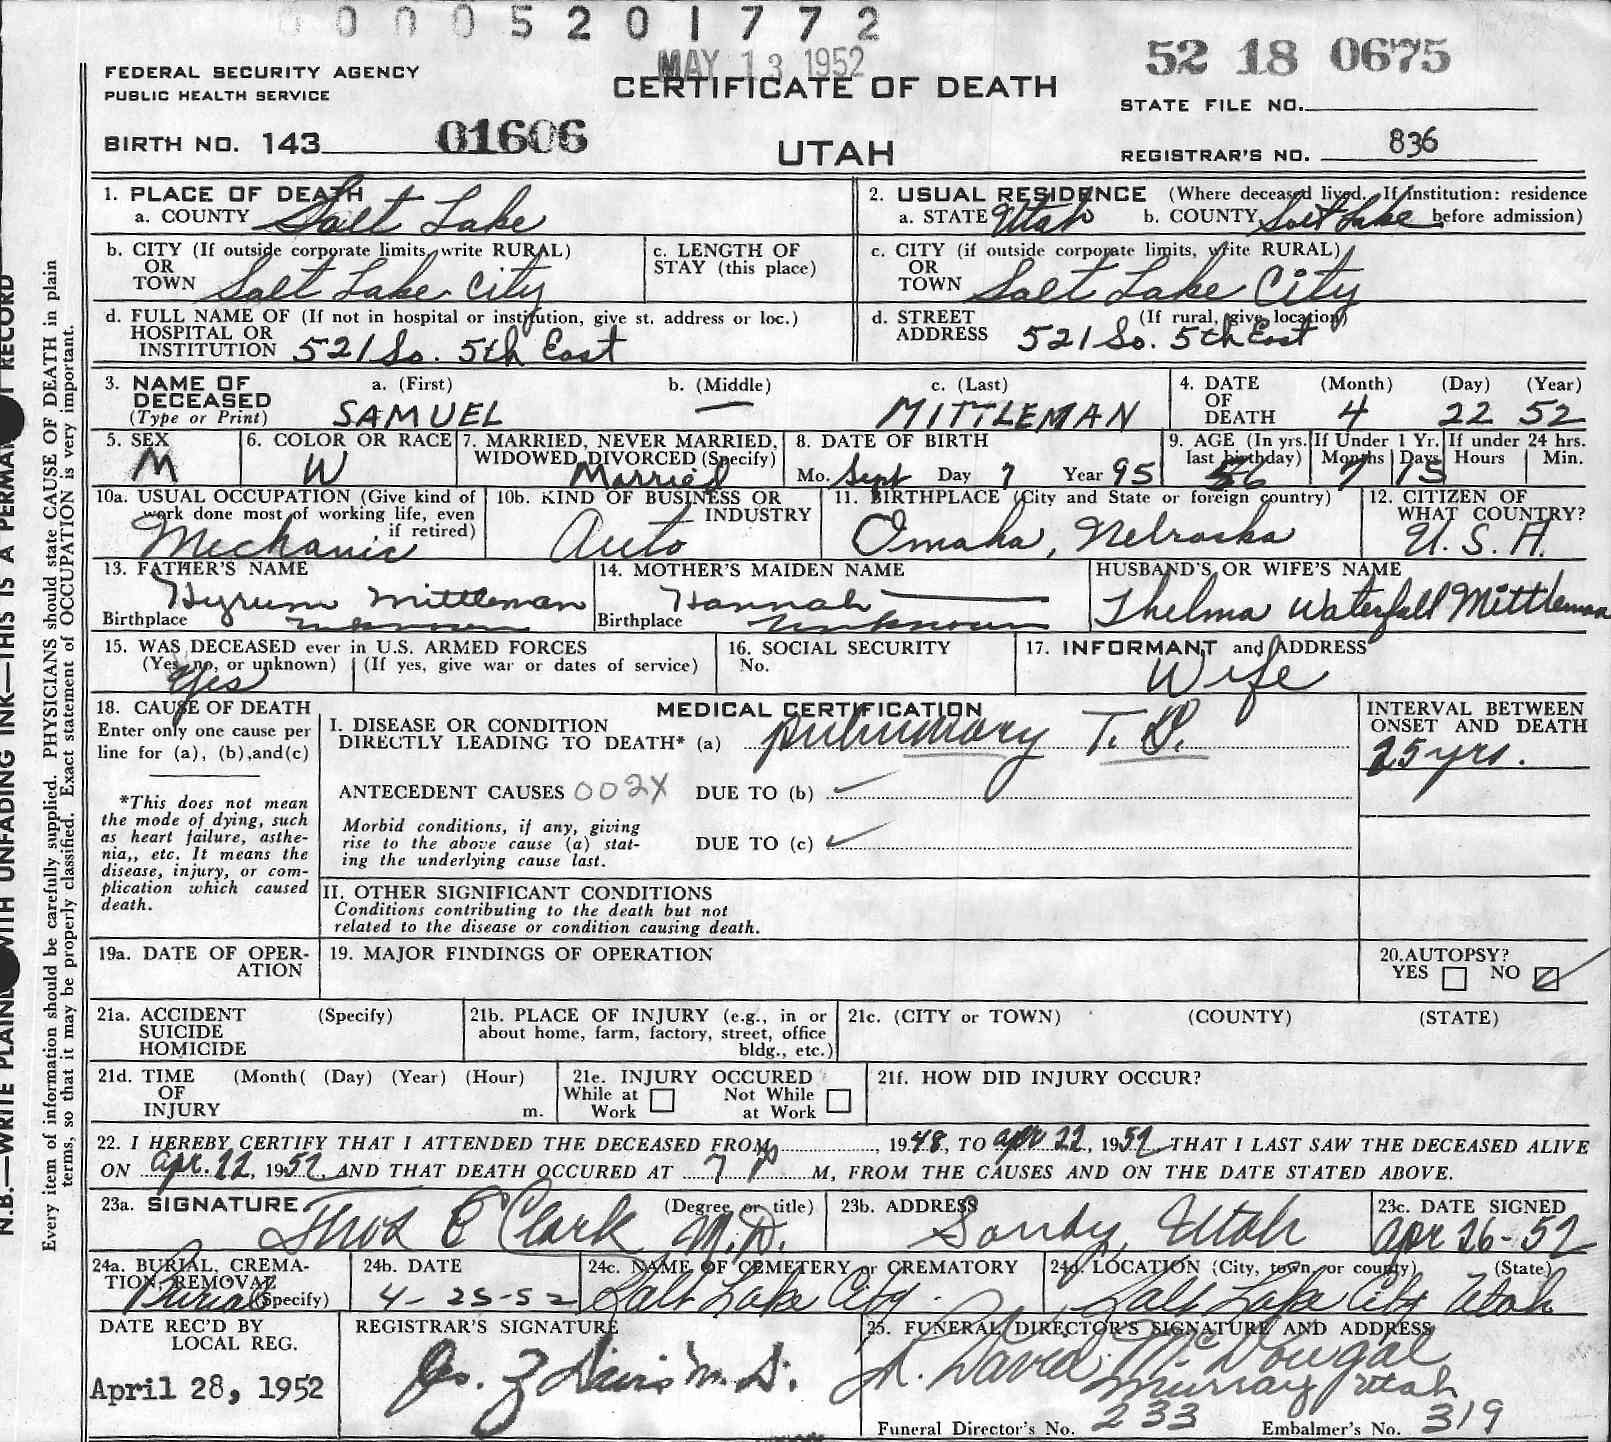 00005201772
MAY 13 1952
52 18 0675
FEDERAL SECURITY AGENCY
PUBLIC HEALTH SERVICE
CERTIFICATE OF DEATH
STATE FILE NO.
BIRTH NO. 143 01606
UTAH
REGISTRAR'S NO. 836
N.B.—WRITE PLAINLY WITH UNFADING INK—THIS IS A PERMANENT RECORD
Every item of information should be carefully supplied. PHYSICIANS should state CAUSE OF DEATH in plain
terms, so that it may be properly classified. Exact statement of OCCUPATION is very important.
1. PLACE OF DEATH
a. COUNTY Salt Lake
2. USUAL RESIDENCE (Where deceased lived. If institution: residence
a. STATE Utah b. COUNTY Salt Lake before admission)
b. CITY (If outside corporate limits, write RURAL)
OR
TOWN Salt Lake City
c. LENGTH OF
STAY (this place)
c. CITY (if outside corporate limits, write RURAL)
OR
TOWN Salt Lake City
d. FULL NAME OF (If not in hospital or institution, give st. address or loc.)
HOSPITAL OR
INSTITUTION 521 So. 5th East
d. STREET (If rural, give location)
ADDRESS 521 So. 5th East
3. NAME OF
DECEASED
(Type or Print)
a. (First) b. (Middle) c. (Last)
SAMUEL — MITTLEMAN
4. DATE
OF
DEATH
(Month) (Day) (Year)
4 22 52
5. SEX
M
6. COLOR OR RACE
W
7. MARRIED, NEVER MARRIED,
WIDOWED, DIVORCED (Specify)
Married
8. DATE OF BIRTH
Mo. Sept Day 7 Year 95
9. AGE (In yrs.
last birthday)
56
If Under 1 Yr.
Months Days
7 15
If under 24 hrs.
Hours Min.
10a. USUAL OCCUPATION (Give kind of
work done most of working life, even
if retired)
Mechanic
10b. KIND OF BUSINESS OR
INDUSTRY
Auto
11. BIRTHPLACE (City and State or foreign country)
Omaha, Nebraska
12. CITIZEN OF
WHAT COUNTRY?
U.S.A.
13. FATHER'S NAME
Hyrum Mittleman
Birthplace unknown
14. MOTHER'S MAIDEN NAME
Hannah —
Birthplace Unknown
HUSBAND'S OR WIFE'S NAME
Thelma Waterfall Mittleman
15. WAS DECEASED ever in U.S. ARMED FORCES
(Yes, no, or unknown) (If yes, give war or dates of service)
Yes
16. SOCIAL SECURITY
No.
17. INFORMANT and ADDRESS
Wife
18. CAUSE OF DEATH
Enter only one cause per
line for (a), (b), and (c)
*This does not mean
the mode of dying, such
as heart failure, asthe-
nia,, etc. It means the
disease, injury, or com-
plication which caused
death.
MEDICAL CERTIFICATION
I. DISEASE OR CONDITION
DIRECTLY LEADING TO DEATH* (a) pulmonary T. B.
ANTECEDENT CAUSES 002X DUE TO (b)
Morbid conditions, if any, giving
rise to the above cause (a) stat-
ing the underlying cause last.
DUE TO (c)
INTERVAL BETWEEN
ONSET AND DEATH
25 yrs.
II. OTHER SIGNIFICANT CONDITIONS
Conditions contributing to the death but not
related to the disease or condition causing death.
19a. DATE OF OPER-
ATION
19. MAJOR FINDINGS OF OPERATION
20. AUTOPSY?
YES NO
21a. ACCIDENT (Specify)
SUICIDE
HOMICIDE
21b. PLACE OF INJURY (e.g., in or
about home, farm, factory, street, office
bldg., etc.)
21c. (CITY or TOWN) (COUNTY) (STATE)
21d. TIME (Month( (Day) (Year) (Hour)
OF
INJURY m.
21e. INJURY OCCURED
While at Not While
Work at Work
21f. HOW DID INJURY OCCUR?
22. I HEREBY CERTIFY THAT I ATTENDED THE DECEASED FROM 1948, TO Apr 22, 1952 THAT I LAST SAW THE DECEASED ALIVE
ON Apr. 22, 1952, AND THAT DEATH OCCURED AT 7 p M, FROM THE CAUSES AND ON THE DATE STATED ABOVE.
23a. SIGNATURE (Degree or title)
Thos E Clark M.D.
23b. ADDRESS
Sandy, Utah
23c. DATE SIGNED
Apr 26-52
24a. BURIAL, CREMA-
TION, REMOVAL
(Specify)
Burial
24b. DATE
4-25-52
24c. NAME OF CEMETERY or CREMATORY
Salt Lake City.
24d. LOCATION (City, town, or county) (State)
Salt Lake City Utah
DATE REC'D BY
LOCAL REG.
April 28, 1952
REGISTRAR'S SIGNATURE
M.D.
25. FUNERAL DIRECTOR'S SIGNATURE AND ADDRESS
David McDougal
Murray Utah
Funeral Director's No. 233 Embalmer's No. 319